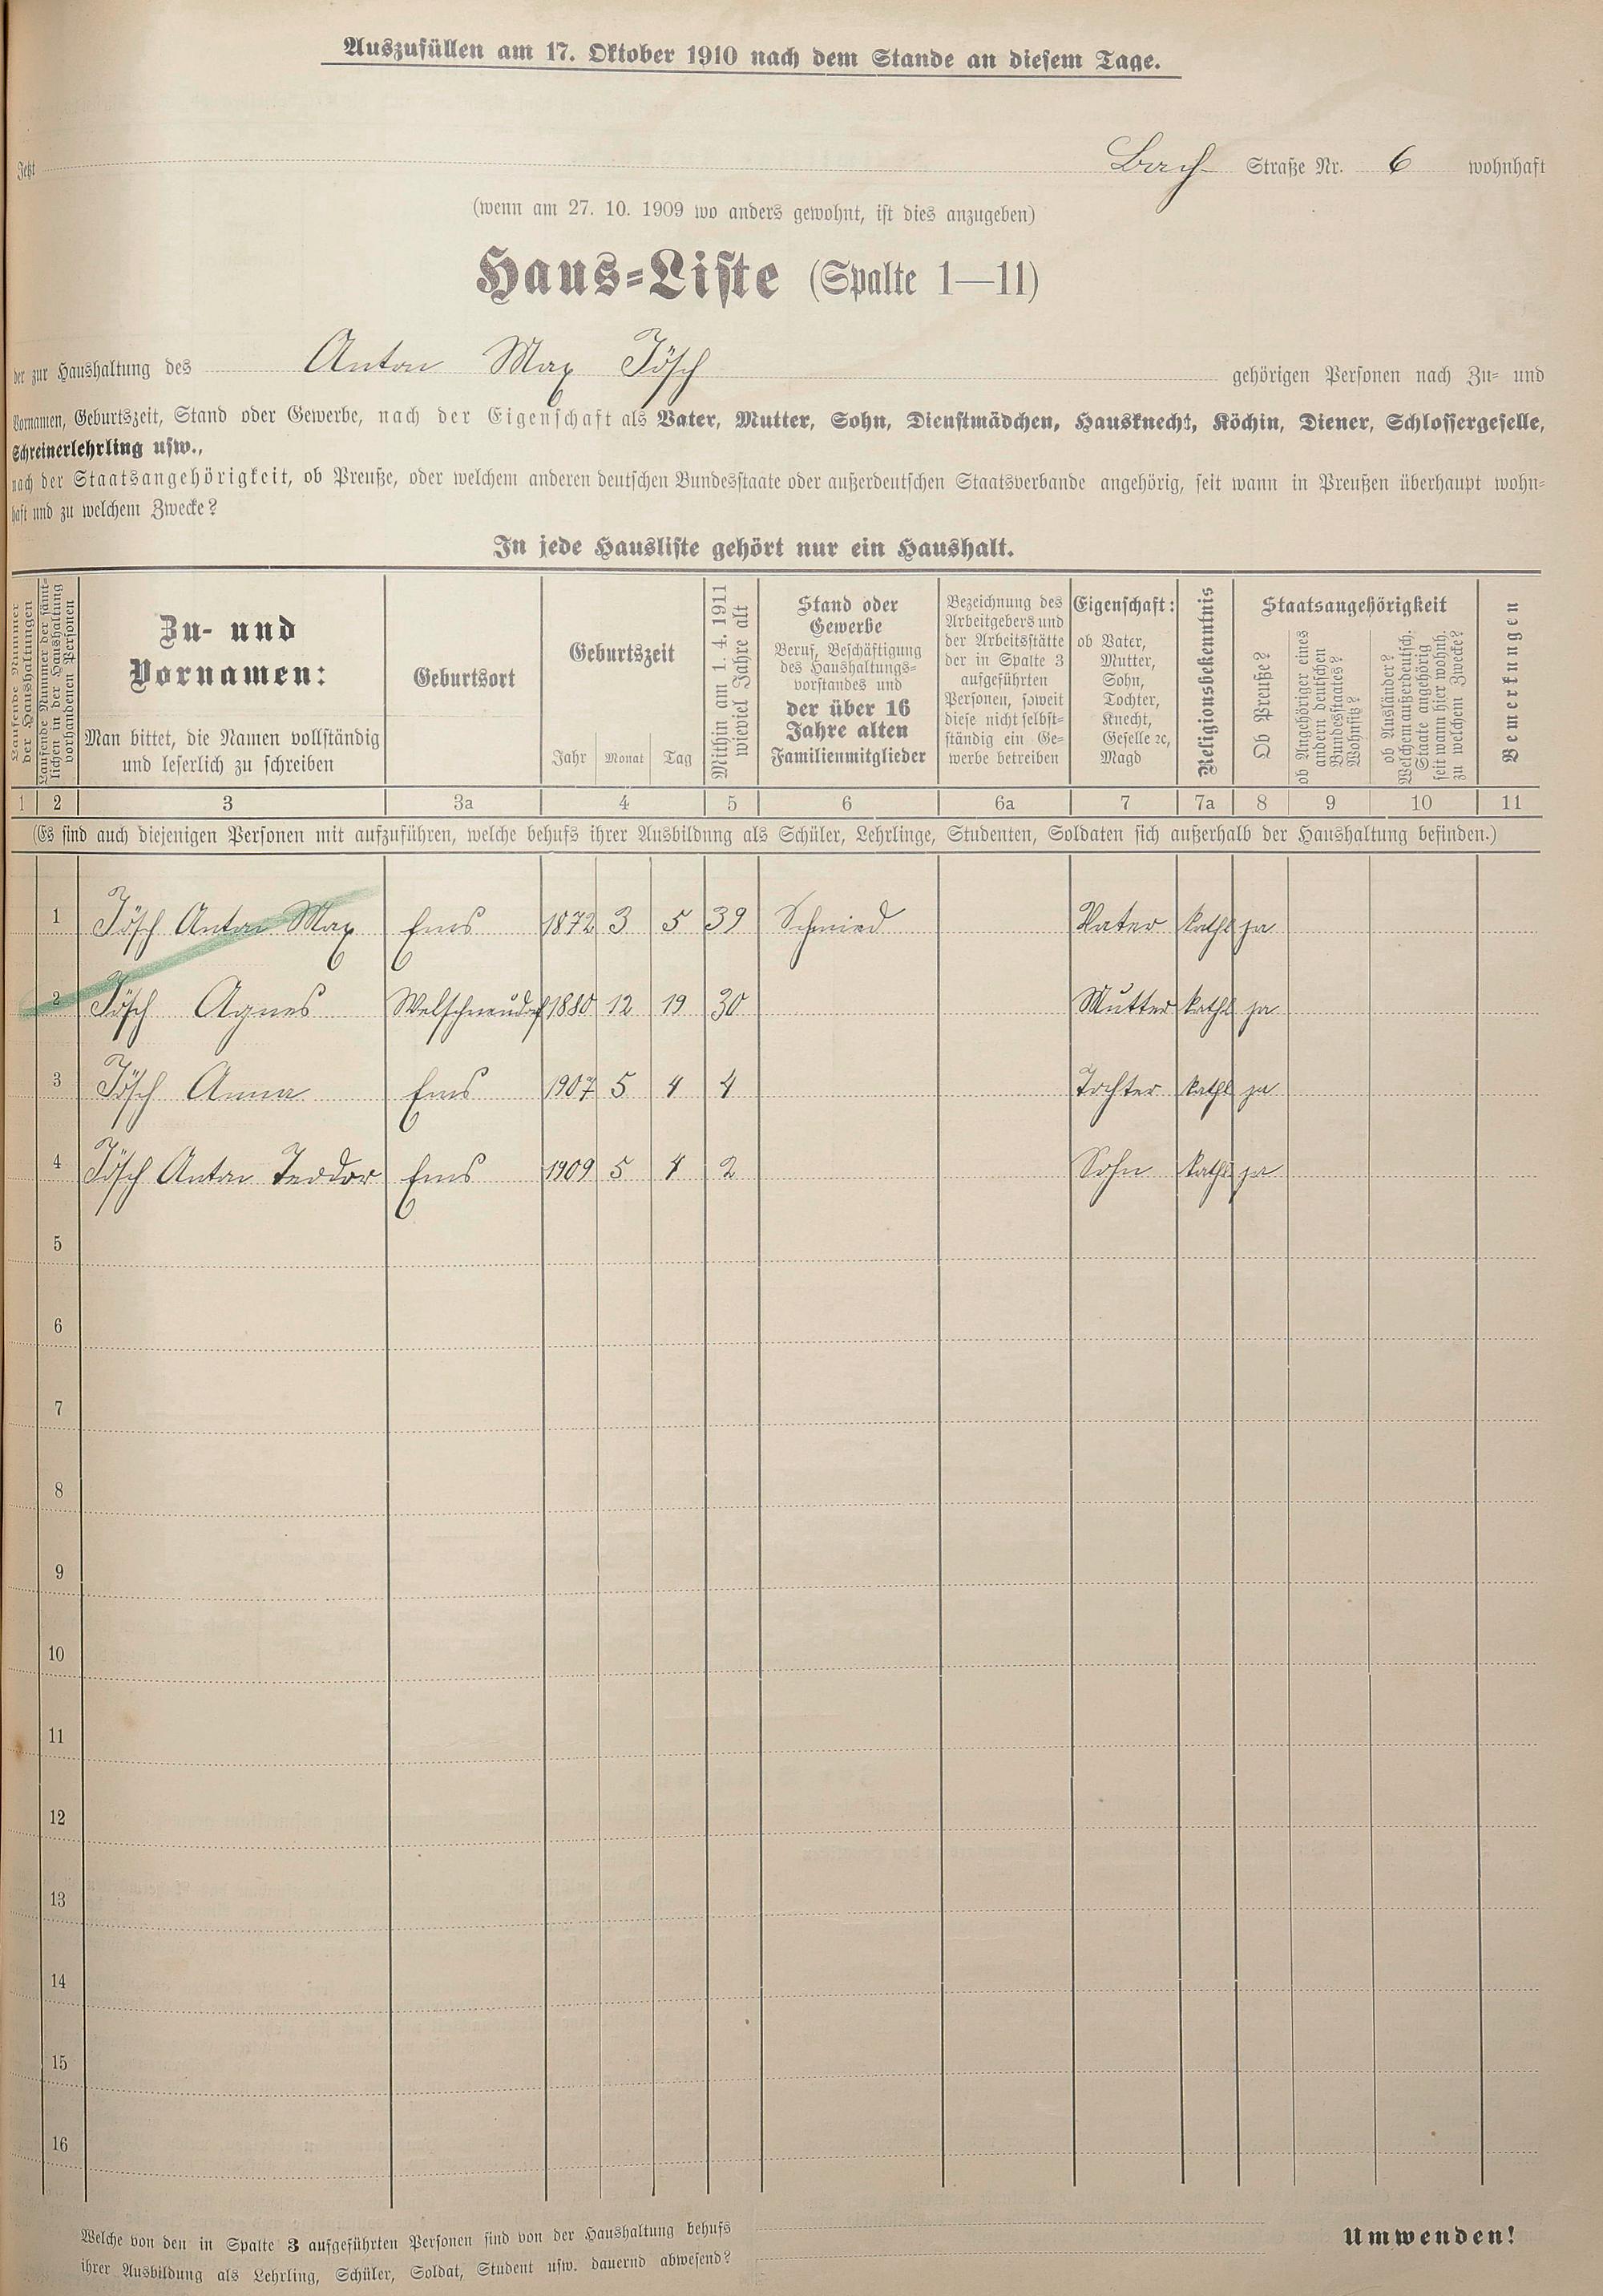 Auszufüllen am 17. Oktober 1910 nach dem Stande an diesem Tage.
Jetzt Bach Straße Nr. 6 wohnhaft
(wenn am 27. 10. 1909 wo anders gewohnt, ist dies anzugeben)
Haus-Liste (Spalte 1—11)
der zur Haushaltung des Anton Max Jösch gehörigen Personen nach Zu- und
Vornamen, Geburtszeit, Stand oder Gewerbe, nach der Eigenschaft als Vater, Mutter, Sohn, Dienstmädchen, Hausknecht, Köchin, Diener, Schlossergeselle,
Schreinerlehrling usw.,
nach der Staatsangehörigkeit, ob Preuße, oder welchem anderen deutschen Bundesstaate oder außerdeutschen Staatsverbande angehörig, seit wann in Preußen überhaupt wohn-
haft und zu welchem Zwecke?
In jede Hausliste gehört nur ein Haushalt.
Laufende Nummer
der Haushaltungen
Laufende Nummer der sämt-
lichen in der Haushaltung
vorhandenen Personen
Zu- und
Vornamen:
Man bittet, die Namen vollständig
und leserlich zu schreiben
Geburtsort
Geburtszeit
Jahr Monat Tag
Mithin am 1. 4. 1911
wieviel Jahre alt
Stand oder
Gewerbe
Beruf, Beschäftigung
des Haushaltungs-
vorstandes und
der über 16
Jahre alten
Familienmitglieder
Bezeichnung des
Arbeitgebers und
der Arbeitsstätte
der in Spalte 3
aufgeführten
Personen, soweit
diese nicht selbst-
ständig ein Ge-
werbe betreiben
Eigenschaft:
ob Vater,
Mutter,
Sohn,
Tochter,
Knecht,
Geselle ꝛc,
Magd
Religionsbekenntnis
Staatsangehörigkeit
Ob Preuße?
ob Angehöriger eines
andern deutschen
Bundesstaates?
Wohnsitz?
ob Ausländer?
Welchem außerdeutsch.
Staate angehörig
seit wann hier wohnh.
zu welchem Zwecke?
Bemerkungen
1 2 3 3a 4 5 6 6a 7 7a 8 9 10 11
(Es sind auch diejenigen Personen mit aufzuführen, welche behufs ihrer Ausbildung als Schüler, Lehrlinge, Studenten, Soldaten sich außerhalb der Haushaltung befinden.)
1 Jösch Anton Max Ems 1872 3 5 39 Schmied Vater kathl ja
2 Jösch Agnes Welschneudorf 1880 12 19 30 Mutter kathl ja
3 Jösch Anna Ems 1907 5 4 4 Tochter kathl ja
4 Jösch Anton Teodor Ems 1909 5 4 2 Sohn kathl ja
5
6
7
8
9
10
11
12
13
14
15
16
Welche von den in Spalte 3 aufgeführten Personen sind von der Haushaltung behufs
ihrer Ausbildung als Lehrling, Schüler, Soldat, Student usw. dauernd abwesend?
Umwenden!